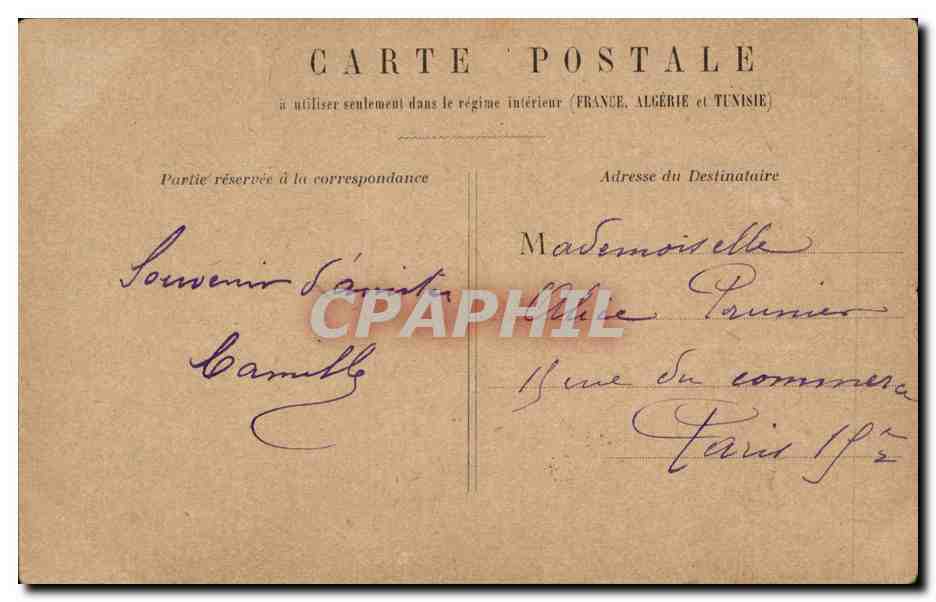 CARTE POSTALE
à utiliser seulement dans le régime intérieur (FRANCE, ALGÉRIE et TUNISIE)
Partie réservée à la correspondance
Souvenir d'amitié
Camille
Adresse du Destinataire
Mademoiselle
Alice Prunier
15 rue du commerce
Paris 15e
CPAPHIL